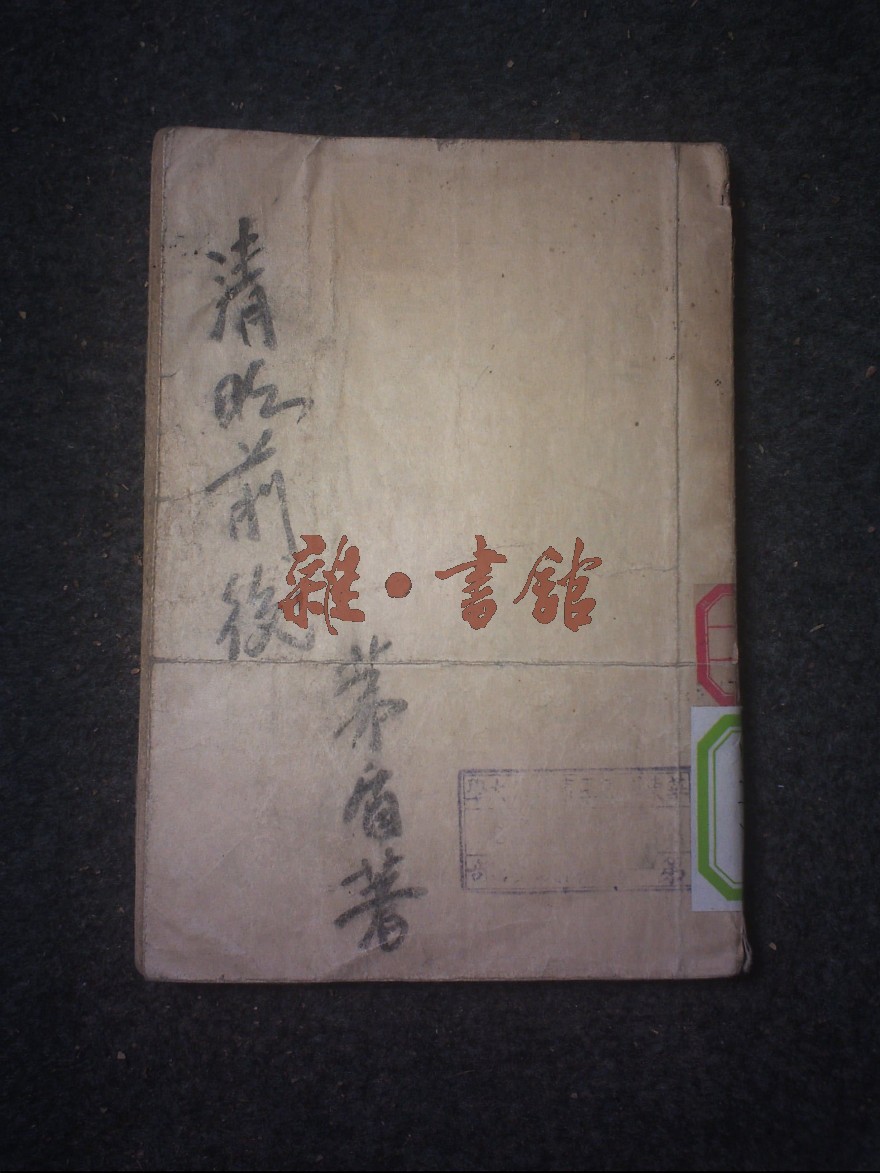 清明前後
茅盾著
雜·書館